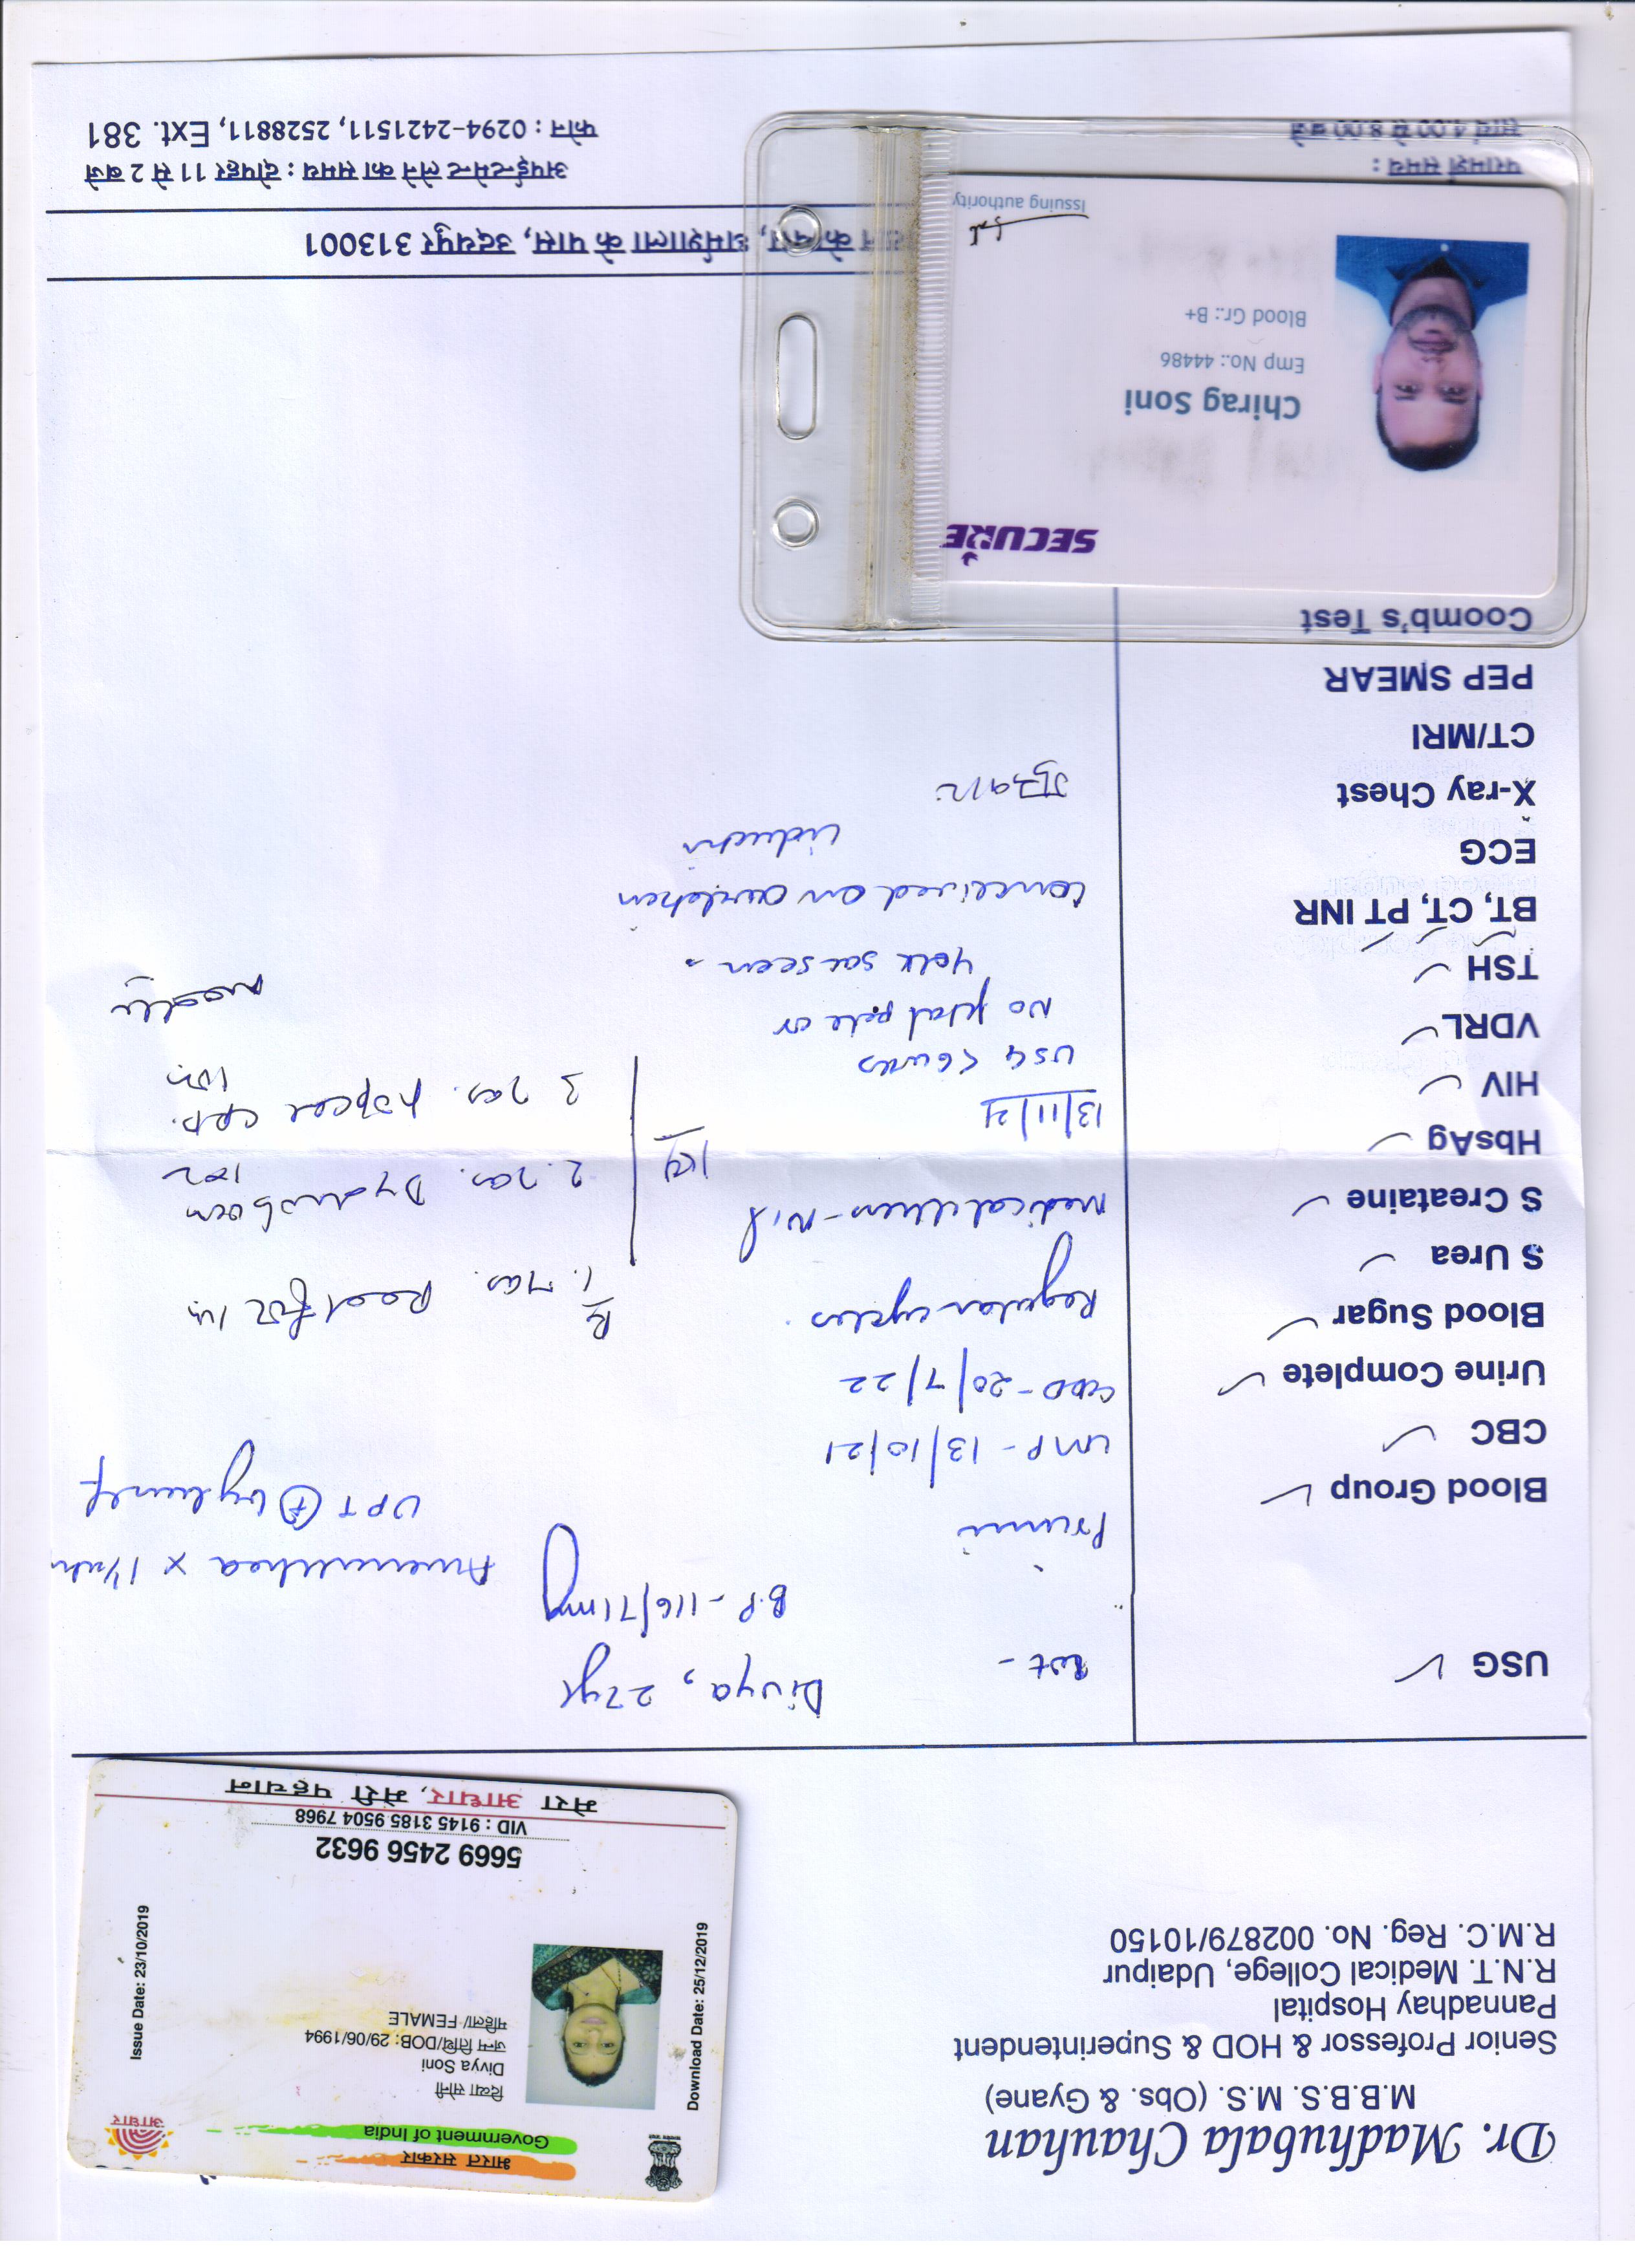 Dr. Madhubala Chauhan
M.B.B.S. M.S. (Obs. & Gyane)
Senior Professor & HOD & Superintendent
Pannadhay Hospital
R.N.T. Medical College, Udaipur
R.M.C. Reg. No. 002879/10150
भारत सरकार
Government of India
आधार
दिव्या सोनी
Divya Soni
जन्म तिथि/DOB: 29/06/1994
महिला/ FEMALE
Download Date: 25/12/2019
Issue Date: 23/10/2019
5669 2456 9632
VID : 9145 3185 9504 7968
मेरा आधार, मेरी पहचान
USG
Blood Group
CBC
Urine Complete
Blood Sugar
S Urea
S Createine
HbsAg
HIV
VDRL
TSH
BT, CT, PT INR
ECG
X-ray Chest
CT/MRI
PEP SMEAR
Coomb's Test
Divya, 27yr
wt -
B.P - 116/71
Primi
Amenorrhea x 1
UPT +
LMP - 13/10/21
EDD - 20/7/22
Regular cycles.
Medical illness - Nil
13/11/21
USG <6wks
No fetal pole or
Yolk sac seen.
Conceived on ovulation
induction
Rx
1.
2.
3.
SECURE
Chirag Soni
Emp No.: 44486
Blood Gr.: B+
Issuing authority
के पास, धर्मशाला के पास, उदयपुर 313001
परामर्श समय :
सायं 4.00 से 8.00 बजे
अपॉईन्टमेन्ट लेने का समय : दोपहर 11 से 2 बजे
फोन : 0294-2421511, 2528811, Ext. 381